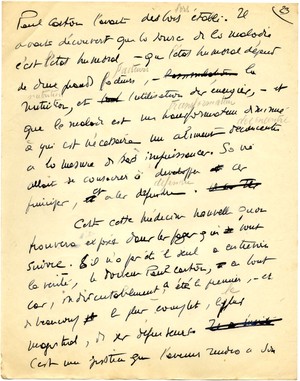 23
Paul Carton l'avait dès lors établi. Il
avait découvert que la source de la maladie
c'est l'état humoral, — que l'état humoral dépend
de deux grands facteurs : la
nutrition, et l'utilisation des énergies, — et
que le malade est un transformateur
à qui est nécessaire un aliment
à la mesure de son impuissance. Sa vie
allait se consacrer à développer et
, et à la défendre.
C'est cette médecine nouvelle qu'on
trouvera exposée dans les pages qui vont
suivre. S'il n'a pas été le seul à
la vérité, le docteur Paul Carton, — a tout
cas, indiscutablement a été le premier, — et
de beaucoup le plus complet, le plus
magistral, de ses défenseurs
C'est une justice que l'avenir rendra à son